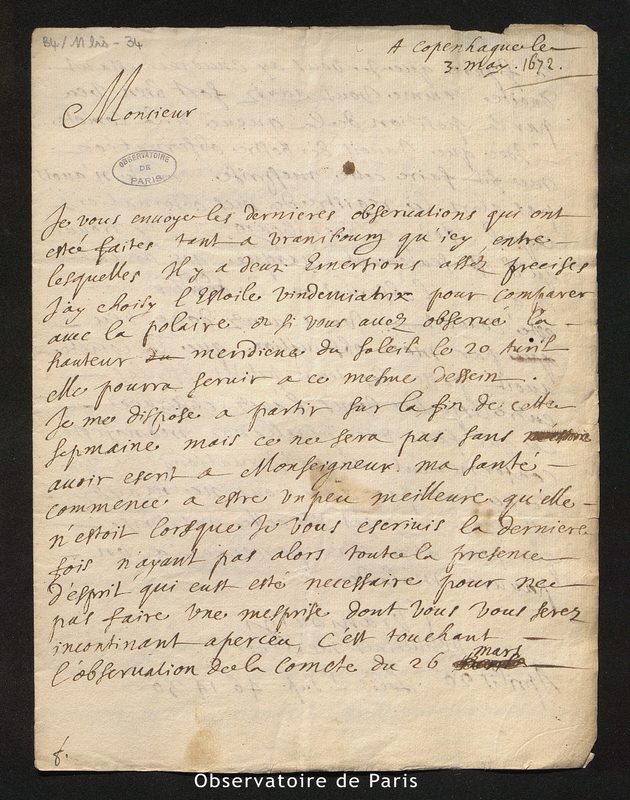 B4/11 bis-34
A Copenhague le
3. may. 1672.
Monsieur
OBSERVATOIRE
DE
PARIS
Je vous envoye les dernieres observations qui ont
esté faites tant a Vranibourg qu'icy entre
lesquelles Il y a deux Emersions assez precises
J'ay choisy l'Estoile vindemiatrix pour comparer
avec la polaire et si vous avez observé la
hauteur meridiene du soleil le 20 Avril
elle pourra servir a ce mesme dessein.
Je me dispose a partir sur la fin de cette
sepmaine mais ce ne sera pas sans
avoir escrit a Monseigneur ma santé
commence a estre un peu meilleure qu'elle
n'estoit lorsque Je vous escrivis la derniere
fois n'ayant pas alors toute la presence
d'esprit qui eust esté necessaire pour ne
pas faire une mesprise dont vous vous serez
incontinant aperceu, c'est touchant
l'observation de la Comete du 26 mars
Observatoire de Paris